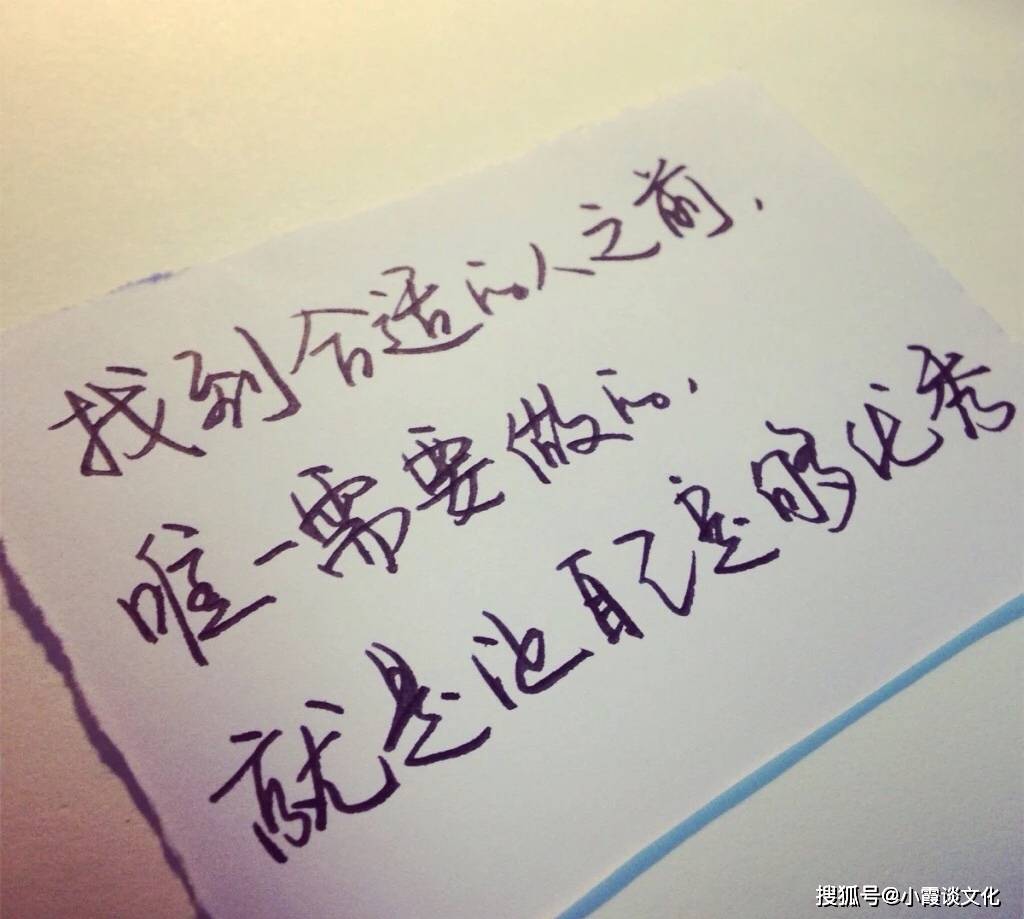 找到合适的人之前,
唯一需要做的,
就是让自己足够优秀
搜狐号@小霞谈文化